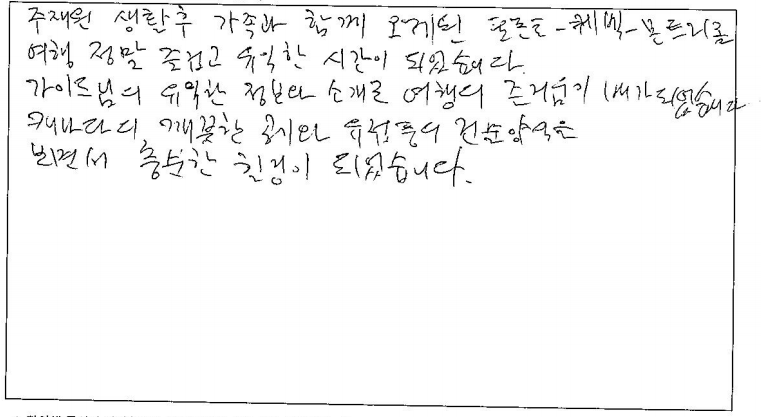 주재원 생활후 가족과 함께 오게된 토론토-퀘벡-몬트리올
여행 정말 즐겁고 유익한 시간이 되었습니다.
가이드님의 유익한 정보와 소개로 여행의 즐거움이 배가되었습니다
캐나다의 깨끗한 공기와 유럽풍의 건축양식을
보면서 충분한 힐링이 되었습니다.